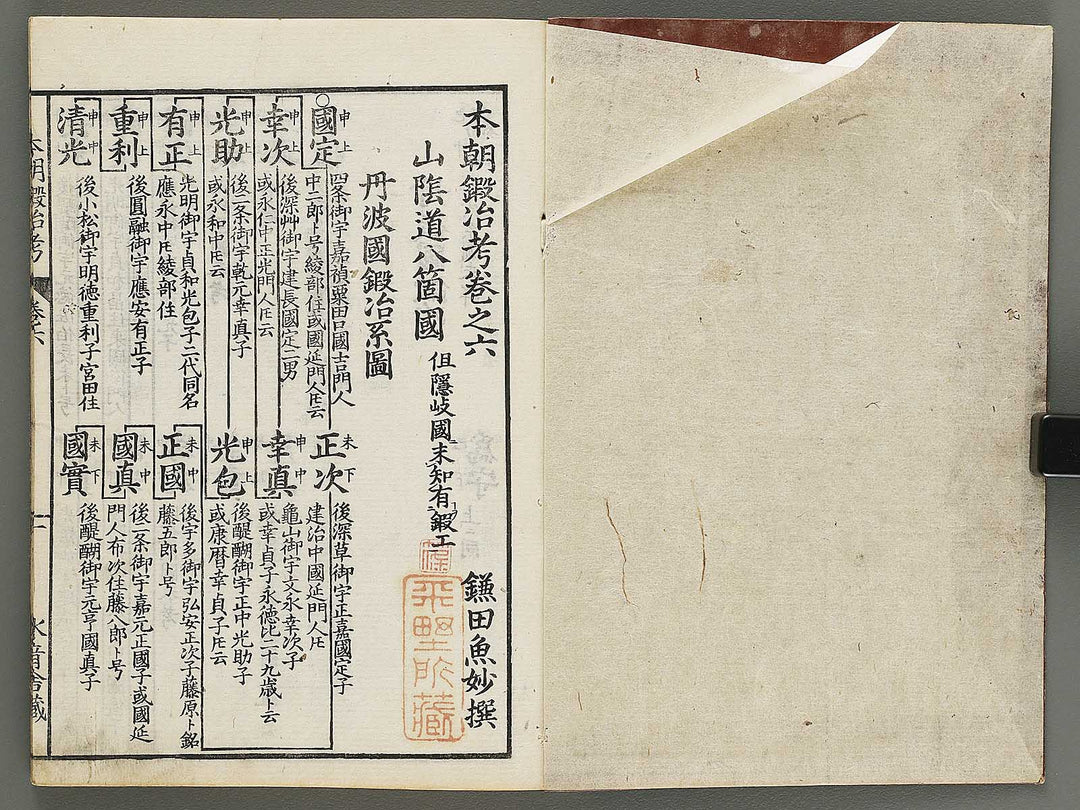 本朝鍛冶考巻之六
鎌田魚妙撰
山陰道八箇國
但隱岐國未知有鍛工
丹波國鍛冶系圖
申上
國定
四条御宇嘉禎粟田口國吉門人
中二郎ト号綾部住或國延門人𪜈云
未下
正次
後深草御宇正嘉國定子
建治中國延門人𪜈
申上
幸次
後深艸御宇建長國定二男
或永仁中正光門人𪜈云
申中
幸真
龜山御宇文永幸次子
或幸貞子永德比二十九歳ト云
申上
光助
後二条御宇乾元幸真子
或永和中𪜈云
申上
光包
後醍醐御宇正中光助子
或康暦幸貞子𪜈云
申上
有正
光明御宇貞和光包子二代同名
應永中𪜈綾部住
未中
正國
後宇多御宇弘安正次子藤原ト銘
藤五郎ト号
申上
重利
後圓融御宇應安有正子
未中
國真
後二条御宇嘉元正國子或國延
門人布次住藤八郎ト号
申中
清光
後小松御宇明徳重利子宮田住
未下
國實
後醍醐御宇元亨國真子
本朝鍛冶考
巻之六
一
水音舎藏
所藏